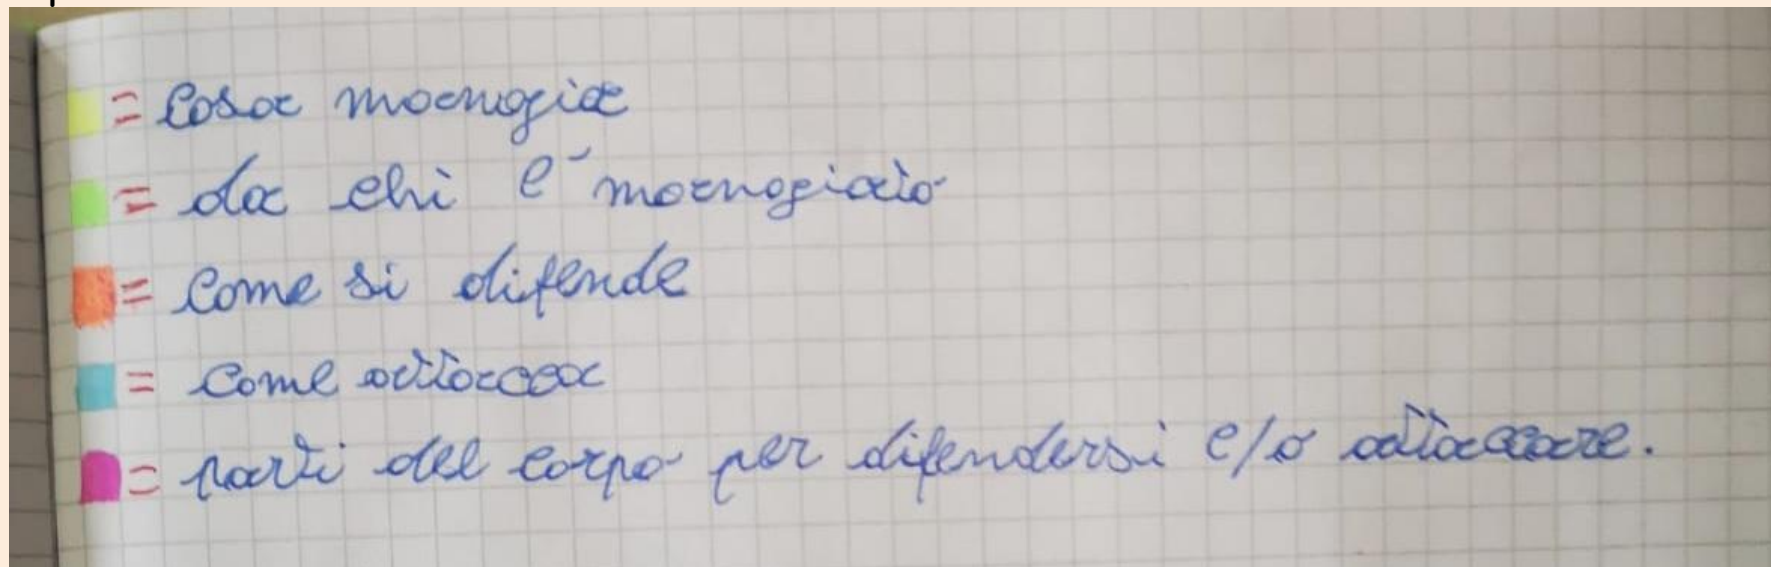 = cosa mangia
= da chi è mangiato
= come si difende
= come attacca
= parti del corpo per difendersi e/o attaccare.